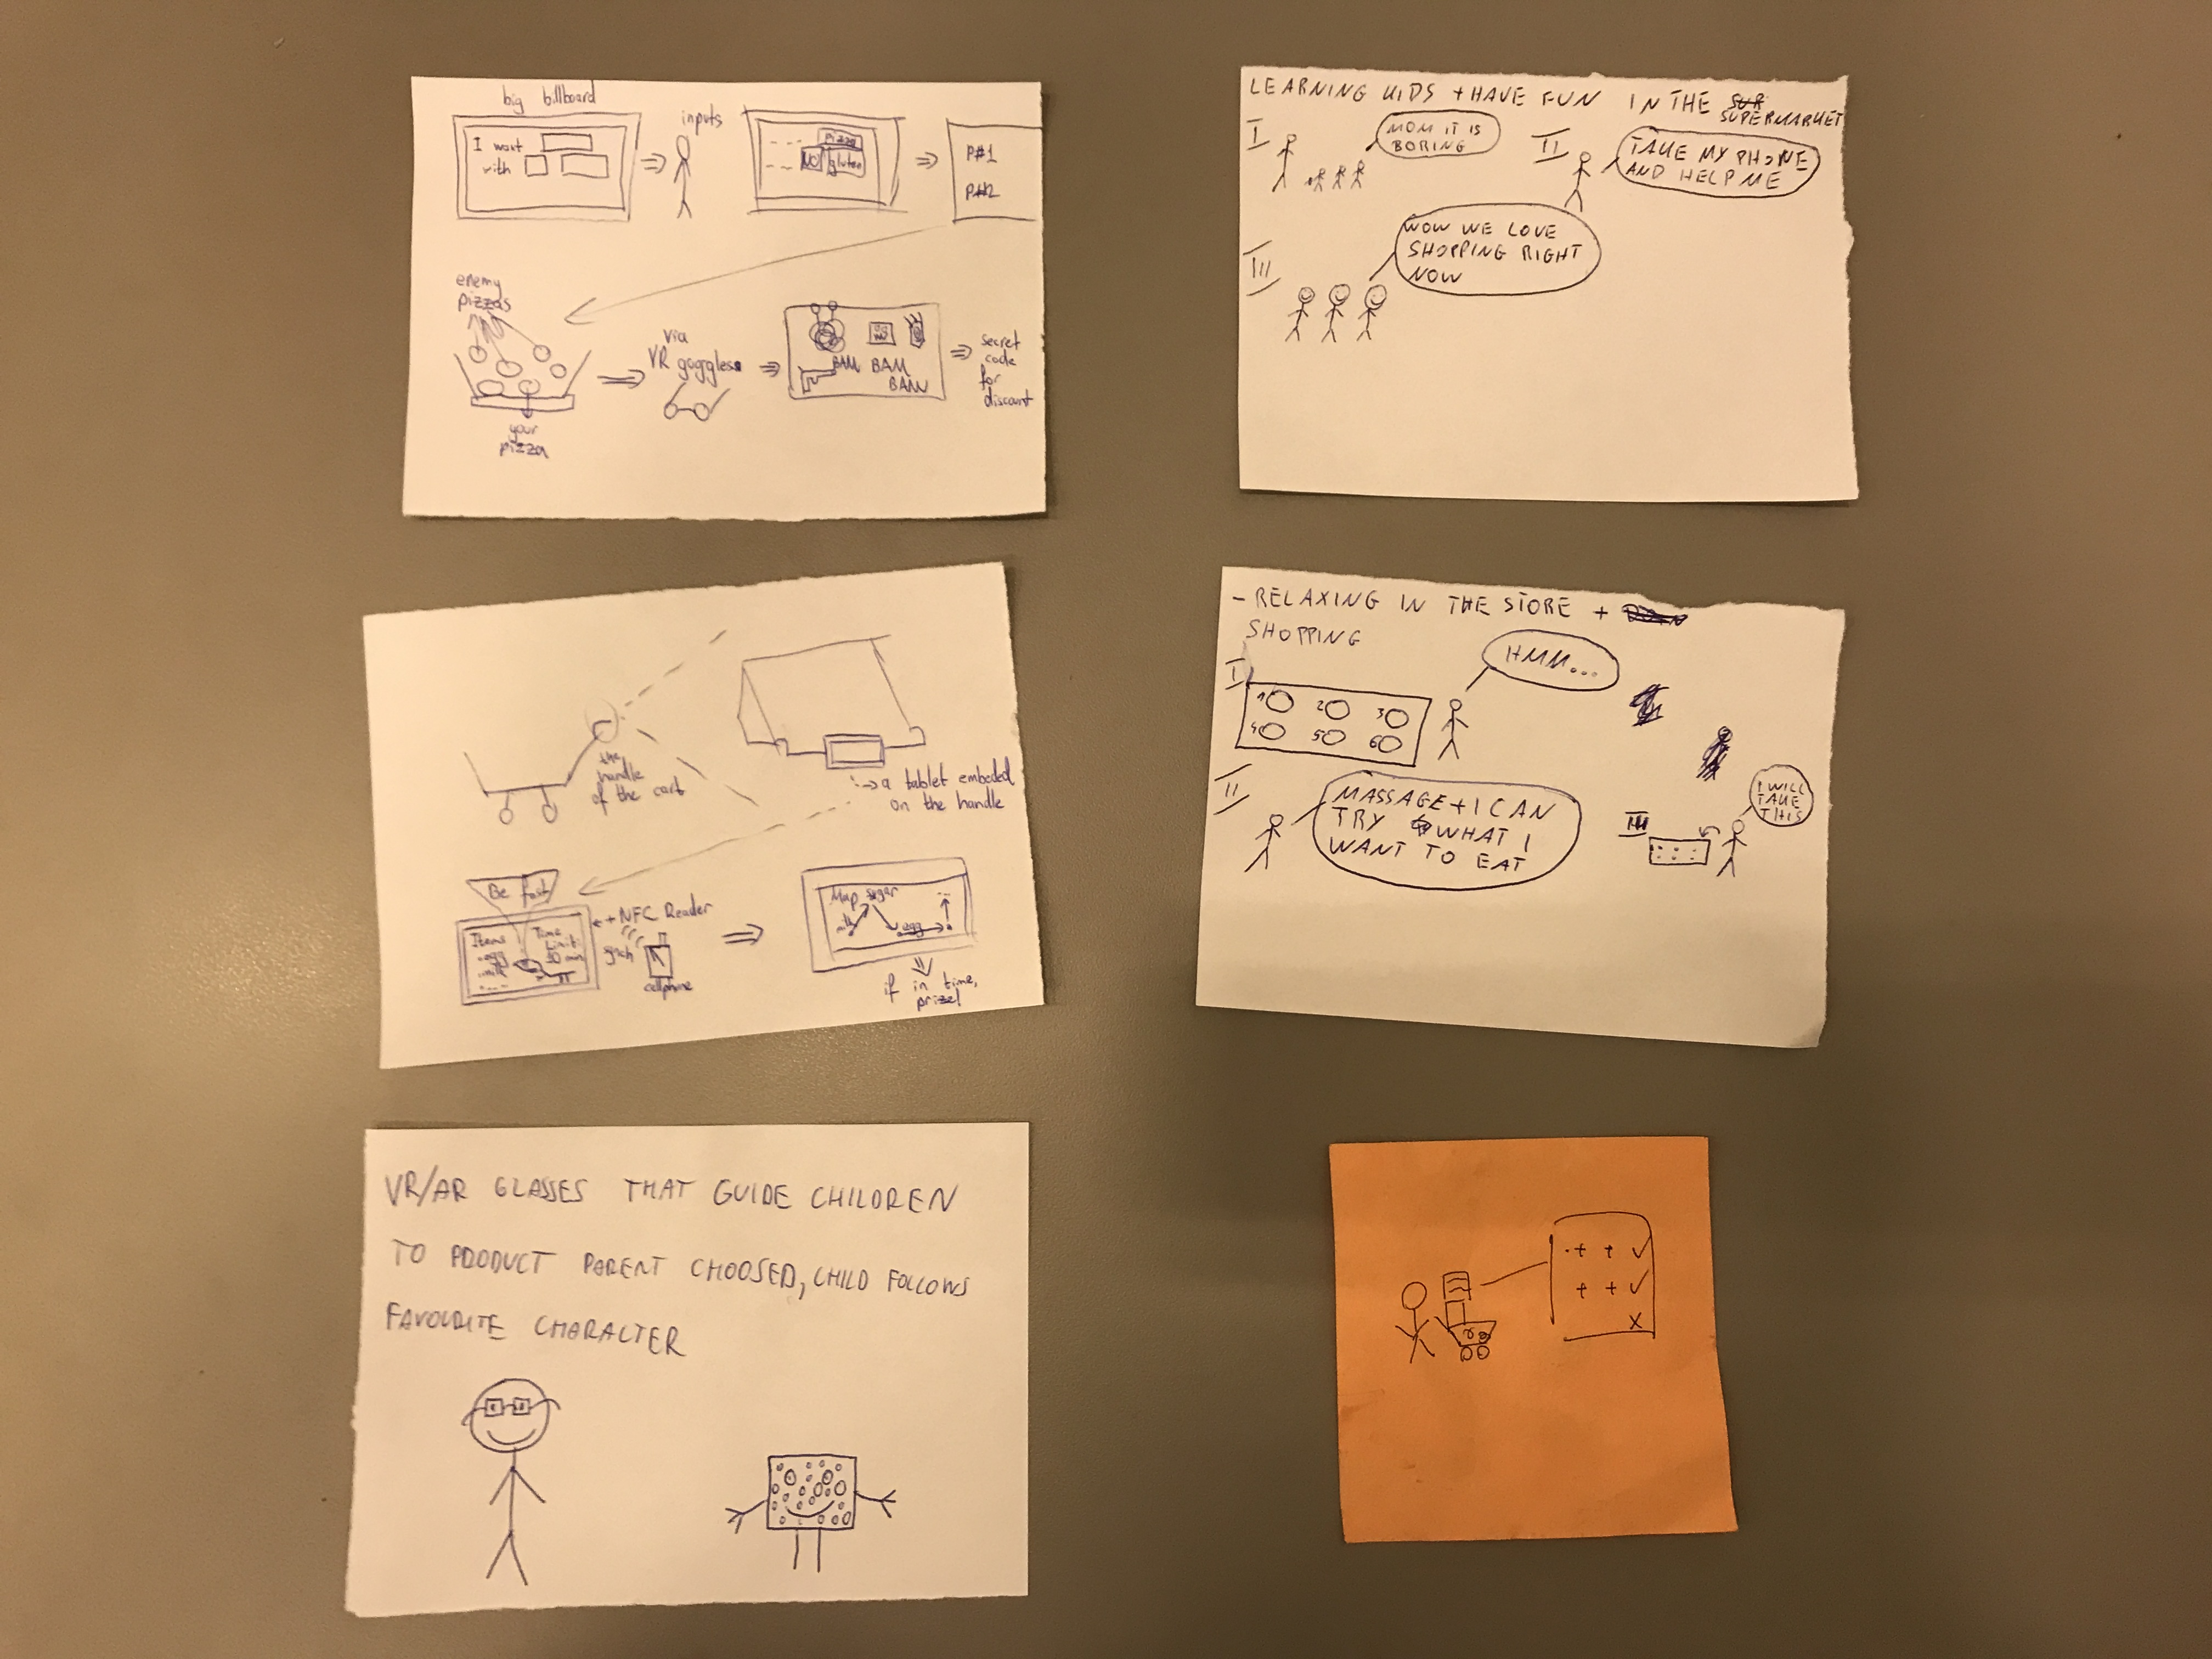 big billboard
I want
with
inputs
pizza
NO gluten
P#1
P#2
enemy
pizzas
your
pizza
via
VR goggles
BAM BAM
BAM
secret
code
for
discount
LEARNING KIDS + HAVE FUN IN THE
SUPERMARKET
I
MOM IT IS
BORING
II
TAKE MY PHONE
AND HELP ME
III
WOW WE LOVE
SHOPPING RIGHT
NOW
the
handle
of the cart
a tablet embeded
on the handle
Be fast
Items
egg
milk
....
Time
limit:
30 min
+ NFC Reader
synch
cellphone
Map sugar
milk
egg
if in time,
prize!
- RELAXING IN THE STORE +
SHOPPING
I
1 2 3
4 5 6
HMM...
II
MASSAGE + I CAN
TRY WHAT I
WANT TO EAT
III
I WILL
TAKE
THIS
VR/AR GLASSES THAT GUIDE CHILDREN
TO PRODUCT PARENT CHOOSED, CHILD FOLLOWS
FAVOURITE CHARACTER
+ + ✓
+ + ✓
x